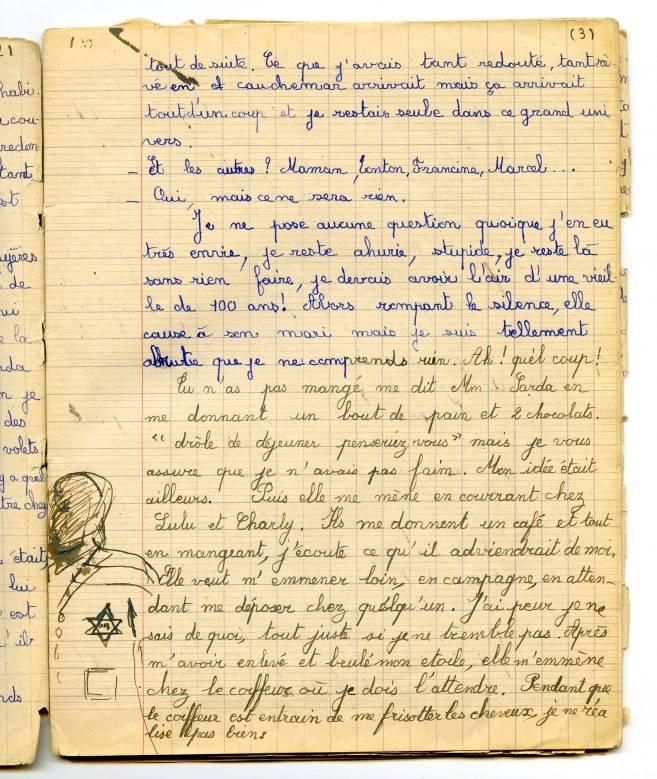 (3)
tout de suite. Ce que j'avais tant redouté, tant rê-
vé en cauchemar arrivait mais ça arrivait
tout d'un coup et je restais seule dans ce grand uni
vers.
_ Et les autres ? Maman, Tonton, Francine, Marcel...
_ Oui, mais ce ne sera rien.
Je ne pose aucune question quoique j'en eu
très envie, je reste ahurie, stupide, je reste là
sans rien faire, je devrais avoir l'air d'une vieil
le de 100 ans! Alors rompant le silence, elle
cause à son mari mais je suis tellement
abrutie que je ne comprends rien. Ah! quel coup!
Tu n'as pas mangé me dit Mm Sarda en
me donnant un bout de pain et 2 chocolats.
"drôle de déjeuner penseriez vous" mais je vous
assure que je n'avais pas faim. Mon idée était
ailleurs. Puis elle me mène en courrant chez
Lulu et Charly. Ils me donnent un café et tout
en mangeant, j'écoute ce qu'il adviendrait de moi.
Elle veut m'emmener loin, en campagne, en atten-
dant me déposer chez quelqu'un. J'ai peur je ne
sais de quoi, tout juste si je ne tremble pas. Après
m'avoir enlevé et brulé mon etoile, elle m'emmène
chez le coiffeur où je dois l'attendre. Pendant que
le coiffeur est entrain de me frisotter les cheveux, je ne réa
lise pas bien: